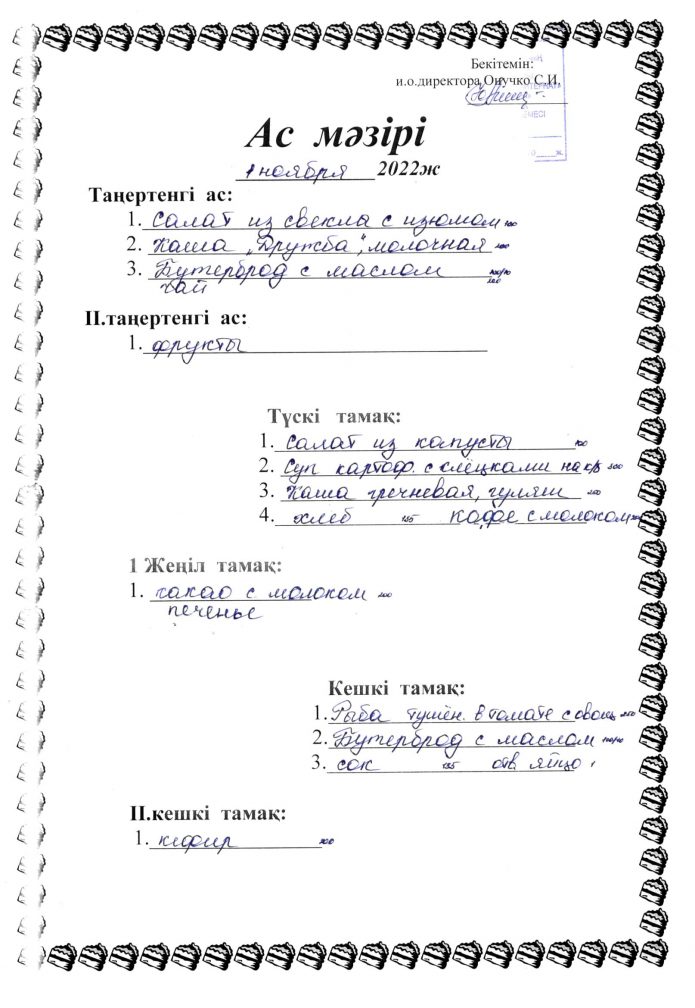 Бекітемін:
и.о.директора Онучко С.И.
МЕСІ
Ас мәзірі
1 ноября 2022ж
Таңертенгі ас:
1. Салат из свеклы с изюмом 100
2. Каша „Дружба", молочная
3. Бутерброд с маслом
чай 200
II.таңертенгі ас:
1. фрукты
Түскі тамақ:
1. Салат из капусты 100
2. Суп картоф. с клёцками на к/б 500
3. Каша гречневая, гуляш 250
4. хлеб 155 кофе с молоком 200
1 Жеңіл тамақ:
1. какао с молоком 200
печенье
Кешкі тамақ:
1. Рыба тушён. в томате с овощ 250
2. Бутерброд с маслом
3. сок 155 отв. яйцо
II.кешкі тамақ:
1. кефир 200